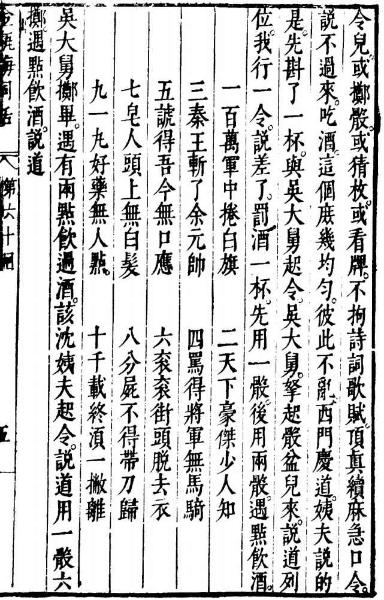 令兒或擲骰或猜枚或看牌不拘詩詞歌賦頂真續麻急口令
說不過來吃酒這個庶幾均勻彼此不亂西門慶道姨夫說的
是先斟了一杯與吳大舅起令吳大舅拏起骰盆兒來說道列
位我行一令說差了罰酒一杯先用一骰後用兩骰遇點飲酒
一百萬軍中捲白旗 二天下豪傑少人知
三秦王斬了余元帥 四罵得將軍無馬騎
五諕得吾今無口應 六衮衮街頭脫去衣
七皂人頭上無白髮 八分屍不得帶刀歸
九一丸好藥無人點 十千載終須一撇離
吳大舅擲畢遇有兩點飲過酒該沈姨夫起令說道用一骰六
擲遇點飲酒說道
金瓶梅詞話 第六十回 五